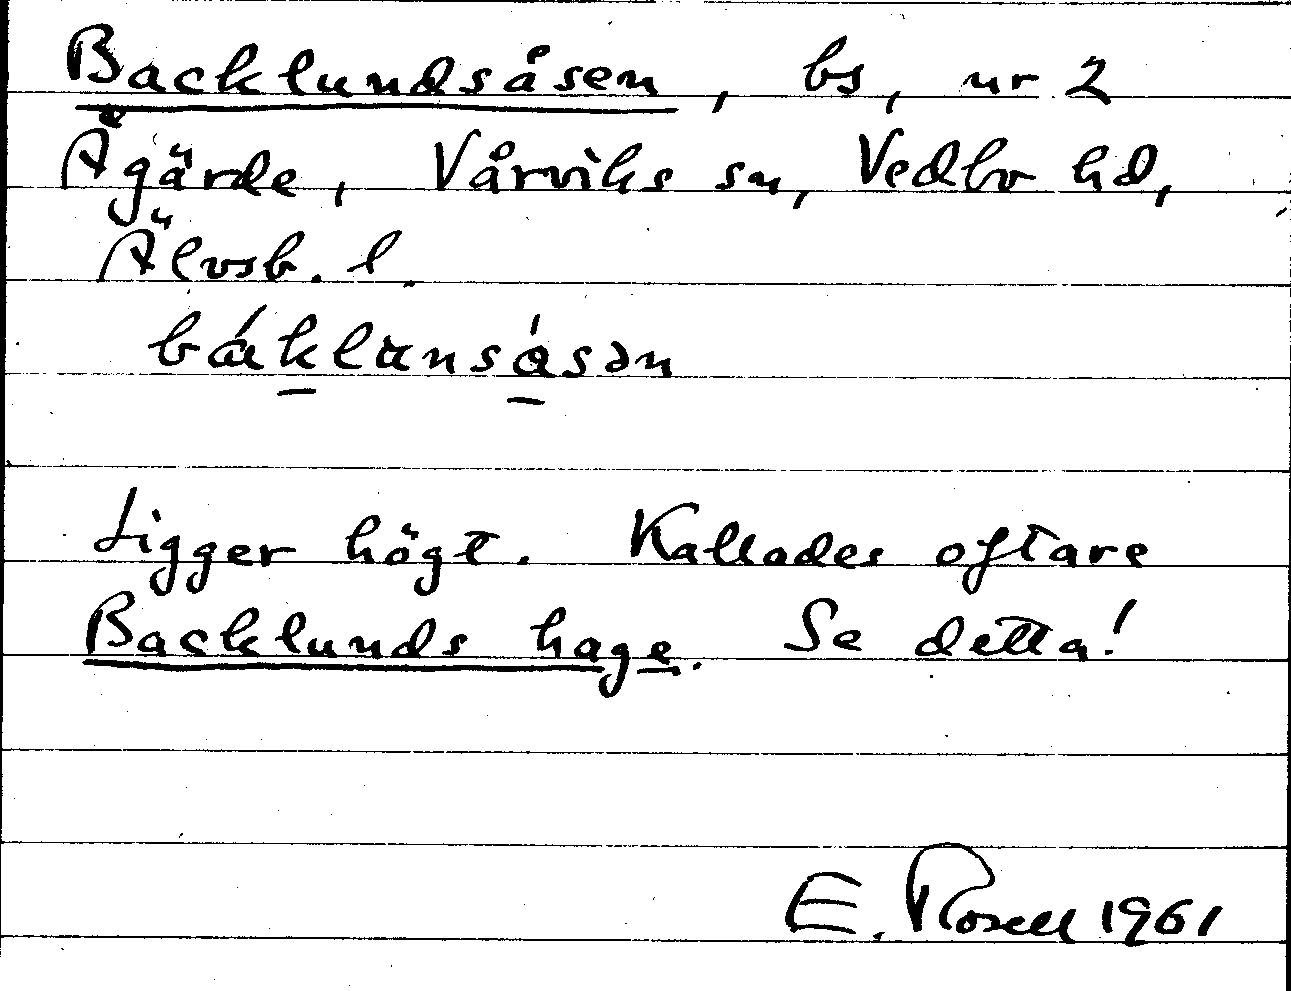 Backlundsåsen, bs, nr 2
Ågärde, Vårviks sn, Vedbo hd,
Älvsb. l.
báklunsåsən
Ligger högt. Kallades oftare
Backlunds hage. Se detta!
E. Rosell 1961